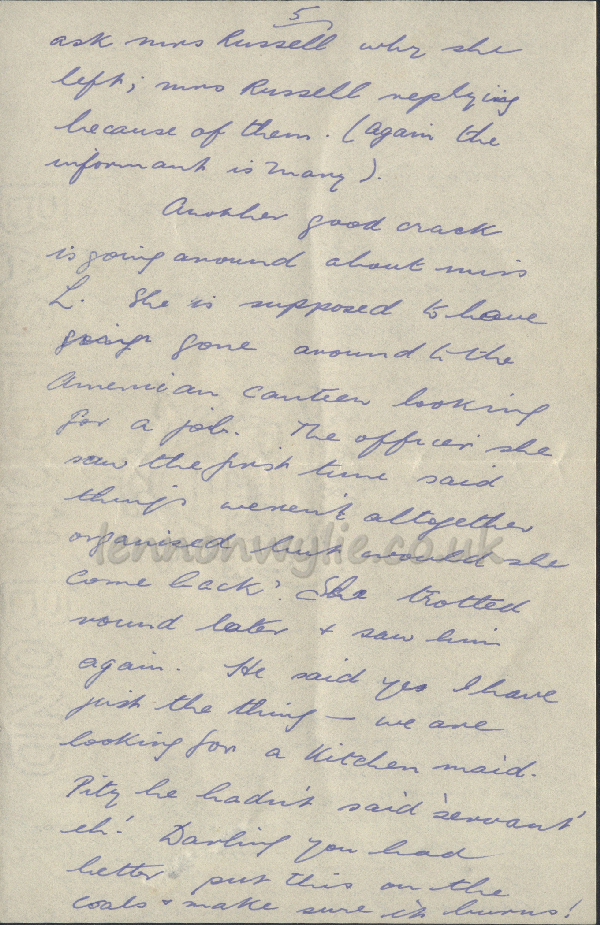 5
ask mrs Russell why she
left; mrs Russell replying
because of them. (again the
informant is Mary).
Another good crack
is going around about miss
L. She is supposed to have
going gone around to the
American canteen looking
for a job. The officer she
saw the first time said
things weren't altogether
organised but would she
lennonwylie.co.uk
come back? She trotted
round later + saw him
again. He said yes I have
just the thing – we are
looking for a Kitchen maid.
Pity he hadn't said 'servant'
eh! Darling you had
better put this on the
coals + make sure it burns!